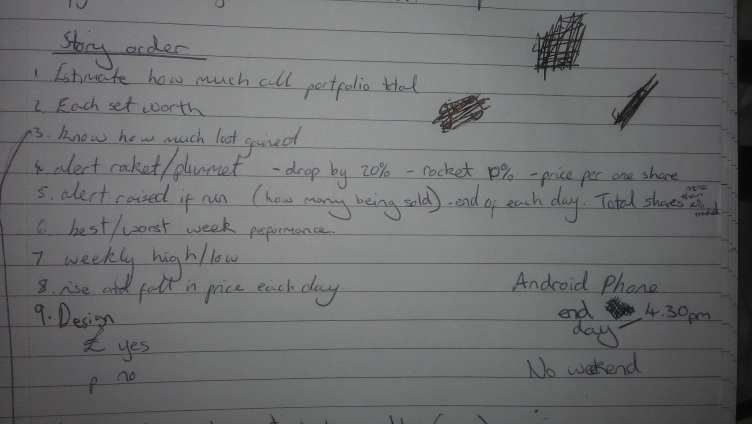 Story order
1 Estimate how much all portfolio total
2. Each set worth
3. know how much lost gained
4. alert rocket/plummet - drop by 20% - rocket 10% - price per one share
5. alert raised if run (how many being sold) - end of each day. Total shares more than
6. best/worst week performance.
7. weekly high/low
8. rise and fall in price each day.
9. Design
£ yes
p no
Android Phone
end day 4.30pm
No weekend